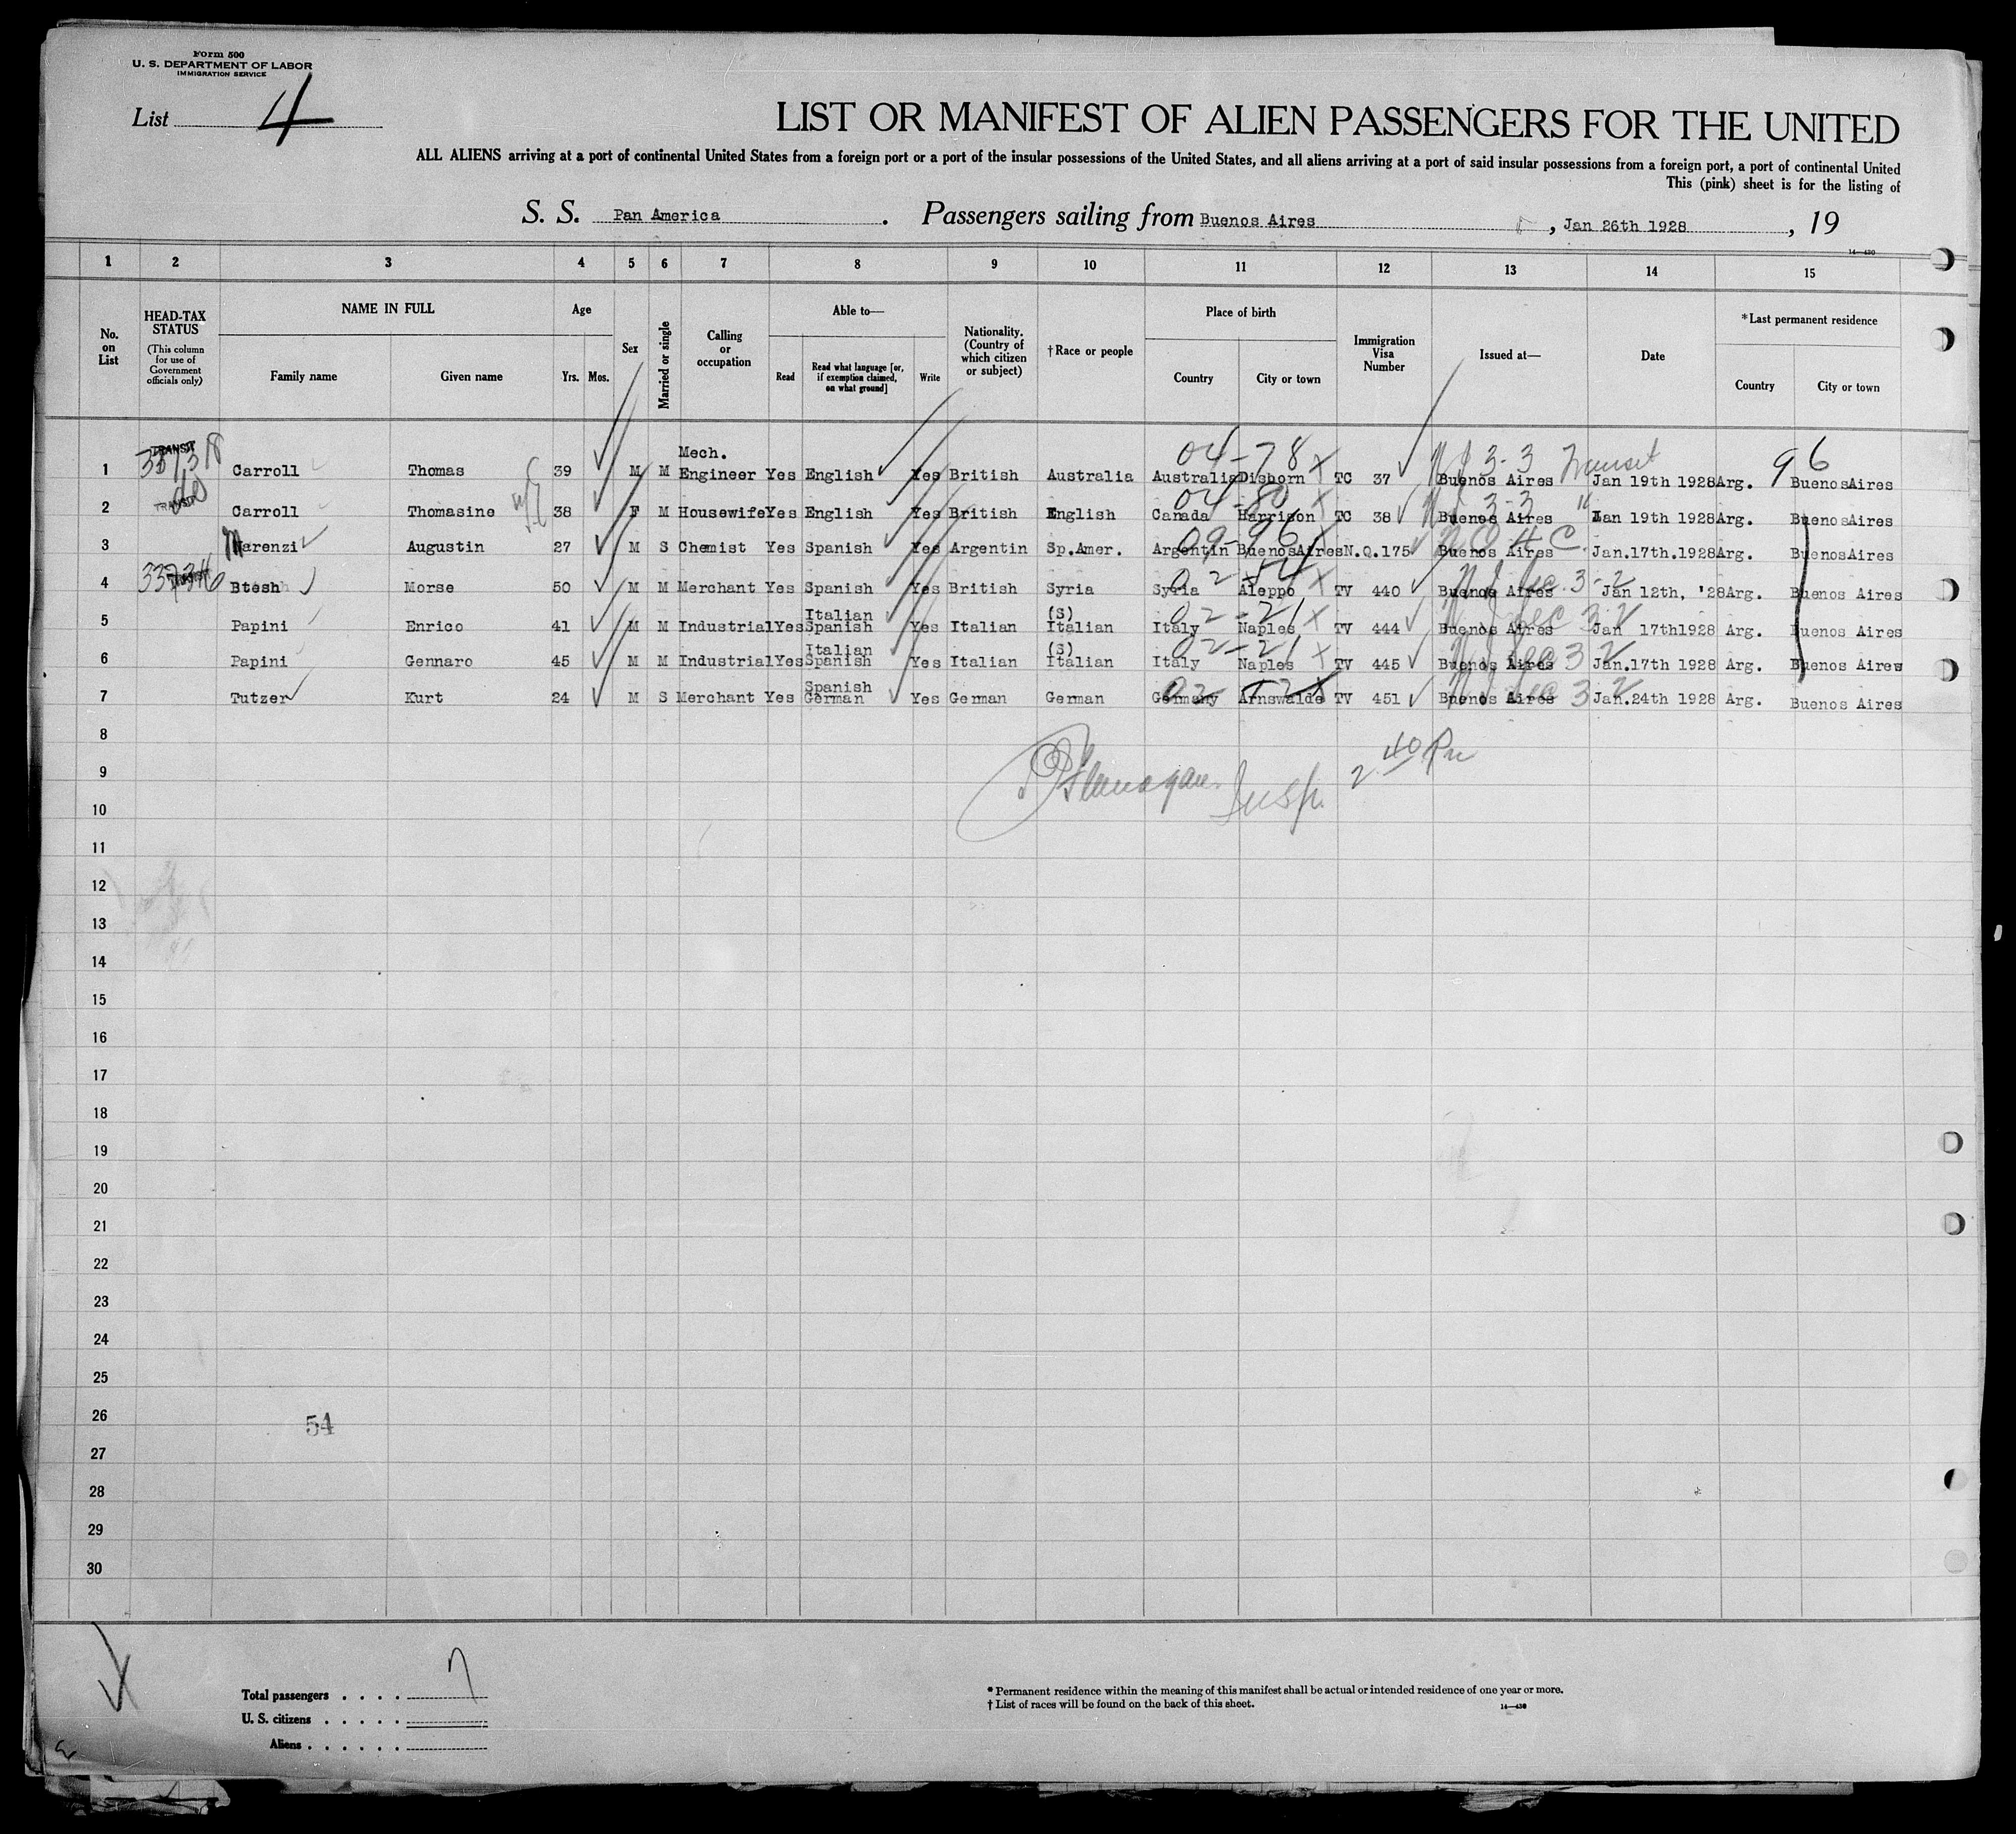 Form 500
U. S. DEPARTMENT OF LABOR
IMMIGRATION SERVICE
List 4
LIST OR MANIFEST OF ALIEN PASSENGERS FOR THE UNITED
ALL ALIENS arriving at a port of continental United States from a foreign port or a port of the insular possessions of the United States, and all aliens arriving at a port of said insular possessions from a foreign port, a port of continental United
This (pink) sheet is for the listing of
S. S. Pan America. Passengers sailing from Buenos Aires, Jan 26th 1928, 19
14—430
1 2 3 4 5 6 7 8 9 10 11 12 13 14 15
No. on List
HEAD-TAX STATUS (This column for use of Government officials only)
NAME IN FULL
Family name
Given name
Age
Yrs. Mos.
Sex
Married or single
Calling or occupation
Able to—
Read
Read what language [or, if exemption claimed, on what ground]
Write
Nationality. (Country of which citizen or subject)
†Race or people
Place of birth
Country
City or town
Immigration Visa Number
Issued at—
Date
*Last permanent residence
Country
City or town
TRANSIT 04-78 X 3-3 Transit 96
1 Carroll Thomas 39 M M Mech. Engineer Yes English Yes British Australia Australia Disborn TC 37 Buenos Aires Jan 19th 1928 Arg. BuenosAires
TRANSIT do 04-80 X 3-3
2 Carroll Thomasine 38 F M Housewife Yes English Yes British English Canada Harrison TC 38 Buenos Aires Jan 19th 1928 Arg. BuenosAires
09-96
3 Marenzi Augustin 27 M S Chemist Yes Spanish Yes Argentin Sp.Amer. Argentin BuenosAires N.Q.175 Buenos Aires Jan.17th.1928 Arg. BuenosAires
02-54 X 3-2
4 Btesh Morse 50 M M Merchant Yes Spanish Yes British Syria Syria Aleppo TV 440 Buenos Aires Jan 12th, '28 Arg. Buenos Aires
02-21 X
5 Papini Enrico 41 M M Industrial Yes Italian Spanish Yes Italian (S) Italian Italy Naples TV 444 Buenos Aires Jan 17th1928 Arg. Buenos Aires
02-21 X
6 Papini Gennaro 45 M M Industrial Yes Italian Spanish Yes Italian (S) Italian Italy Naples TV 445 Buenos Aires Jan.17th 1928 Arg. Buenos Aires
7 Tutzer Kurt 24 M S Merchant Yes Spanish German Yes German German Germany Arnswalde TV 451 Buenos Aires Jan.24th 1928 Arg. Buenos Aires
8
9 Flanagan Insp. 2 40 Pm
10
11
12
13
14
15
16
17
18
19
20
21
22
23
24
25
26 54
27
28
29
30
Total passengers . . . . 7
U. S. citizens . . . . .
Aliens . . . . . .
* Permanent residence within the meaning of this manifest shall be actual or intended residence of one year or more.
† List of races will be found on the back of this sheet.
14—430